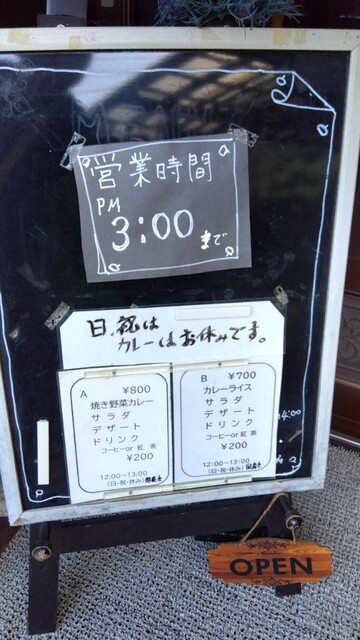 営業時間
PM
3:00
まで
日、祝は
カレーはお休みです。
A ¥800
焼き野菜カレー
サラダ
デザート
ドリンク
コーヒーor紅茶
¥200
12:00~13:00
(日・祝・休み)
B ¥700
カレーライス
サラダ
デザート
ドリンク
コーヒーor紅茶
¥200
12:00~13:00
(日・祝・休み)
OPEN